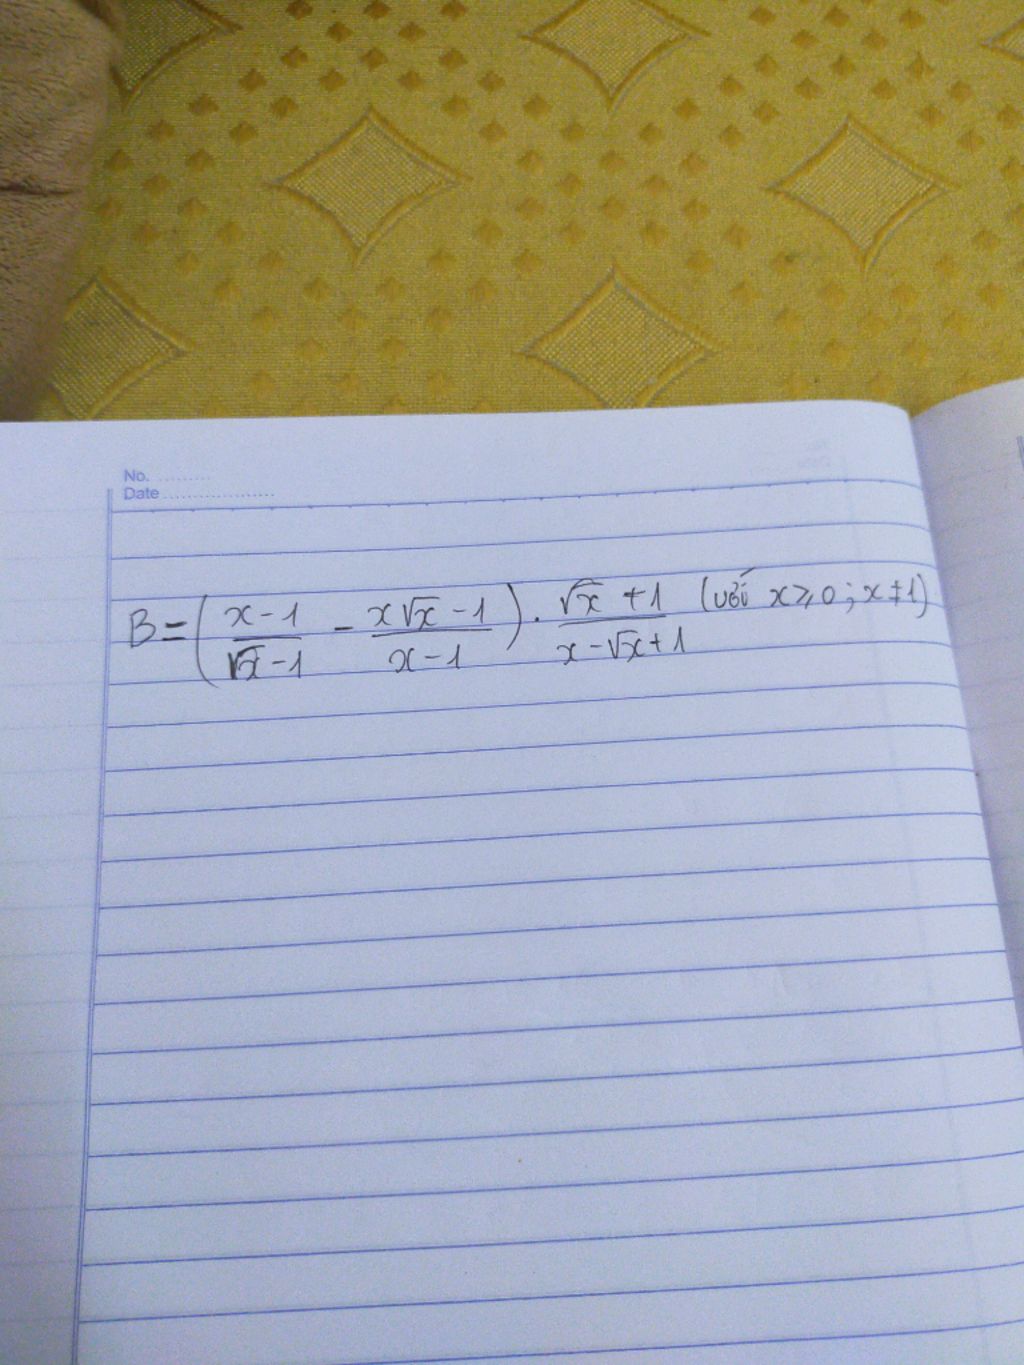 No. ..........
Date ....................
B = ( (x - 1)/(√x - 1) - (x√x - 1)/(x - 1) ) . (√x + 1)/(x - √x + 1) (với x ⩾ 0 ; x ≠ 1)